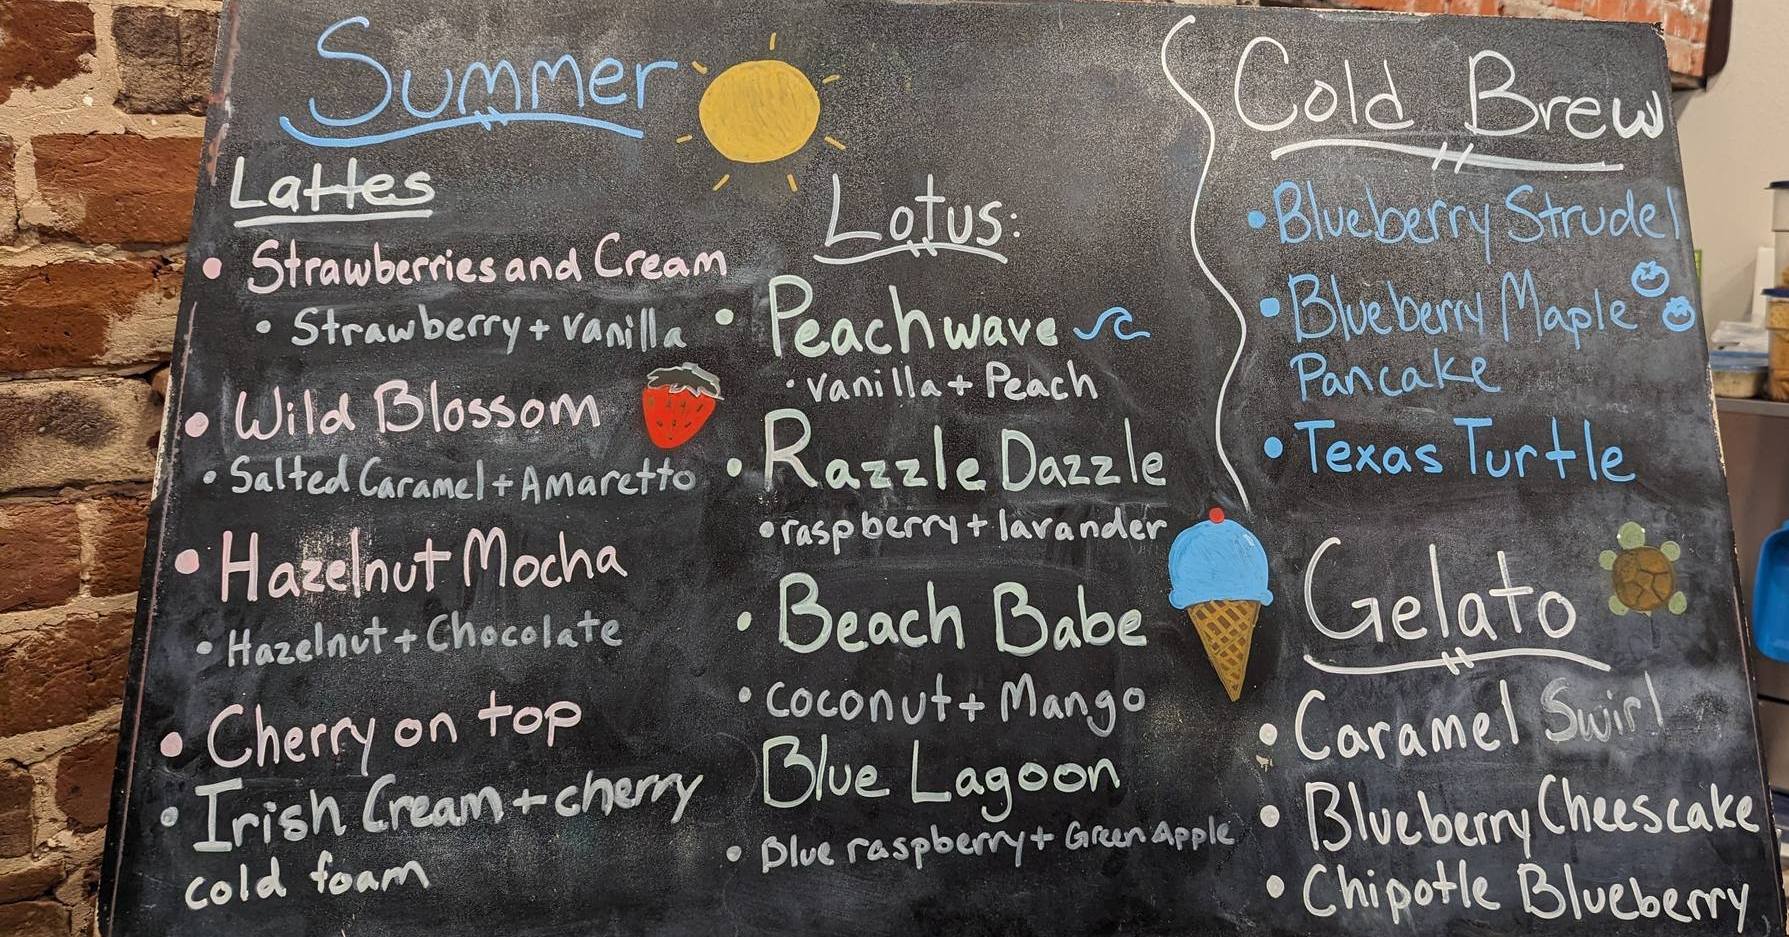 Summer
Lattes
• Strawberries and Cream
• Strawberry + vanilla
• Wild Blossom
• Salted Caramel + Amaretto
• Hazelnut Mocha
• Hazelnut + Chocolate
• Cherry on top
• Irish Cream + cherry
cold foam
Lotus:
• Peach wave
• vanilla + Peach
• Razzle Dazzle
• raspberry + lavander
• Beach Babe
• coconut + Mango
Blue Lagoon
• Blue raspberry + Green Apple
Cold Brew
• Blueberry Strudel
• Blueberry Maple
Pancake
• Texas Turtle
Gelato
• Caramel Swirl
• Blueberry Cheescake
• Chipotle Blueberry